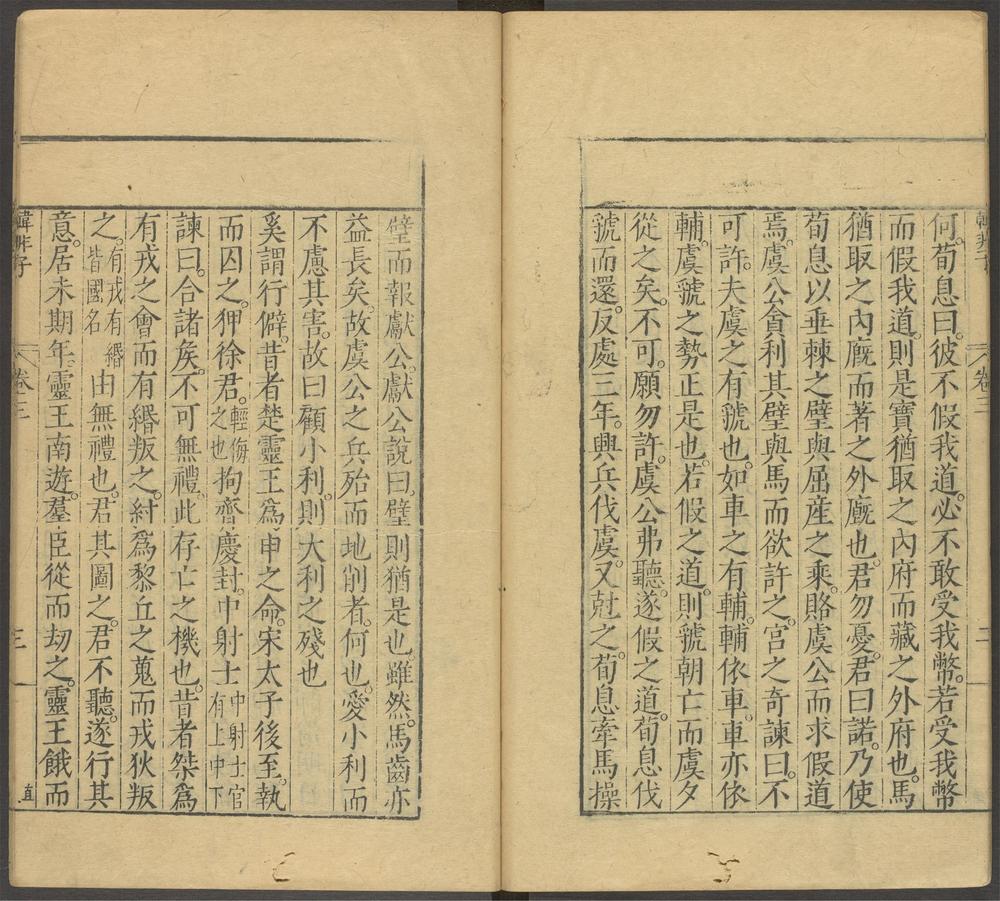 何。荀息曰。彼不假我道。必不敢受我幣。若受我幣
而假我道。則是寶猶取之內府而藏之外府也。馬
猶取之內廐而著之外廐也。君勿憂。君曰諾。乃使
荀息以垂棘之璧與屈産之乘。賂虞公而求假道
焉。虞公貪利其璧與馬而欲許之。宮之奇諫曰。不
可許。夫虞之有虢也。如車之有輔。輔依車。車亦依
輔。虞虢之勢正是也。若假之道。則虢朝亡而虞夕
從之矣。不可。願勿許。虞公弗聽。遂假之道。荀息伐
虢而還。反處三年。興兵伐虞。又尅之。荀息牽馬操
璧而報獻公。獻公說曰。璧則猶是也。雖然。馬齒亦
益長矣。故虞公之兵殆而地削者。何也。愛小利而
不慮其害。故曰顧小利。則大利之殘也
奚謂行僻。昔者楚靈王爲申之命。宋太子後至。執
而囚之。狎徐君。輕侮之也拘齊慶封。中射士中射士官有上中下
諫曰。合諸矦。不可無禮。此存亡之機也。昔者桀爲
有戎之會而有緡叛之。紂爲黎丘之蒐而戎狄叛
之。有戎有緡皆國名由無禮也。君其圖之。君不聽。遂行其
意。居未期年。靈王南遊。羣臣從而劫之。靈王餓而
韓非子
卷三
三
直
卷三
二